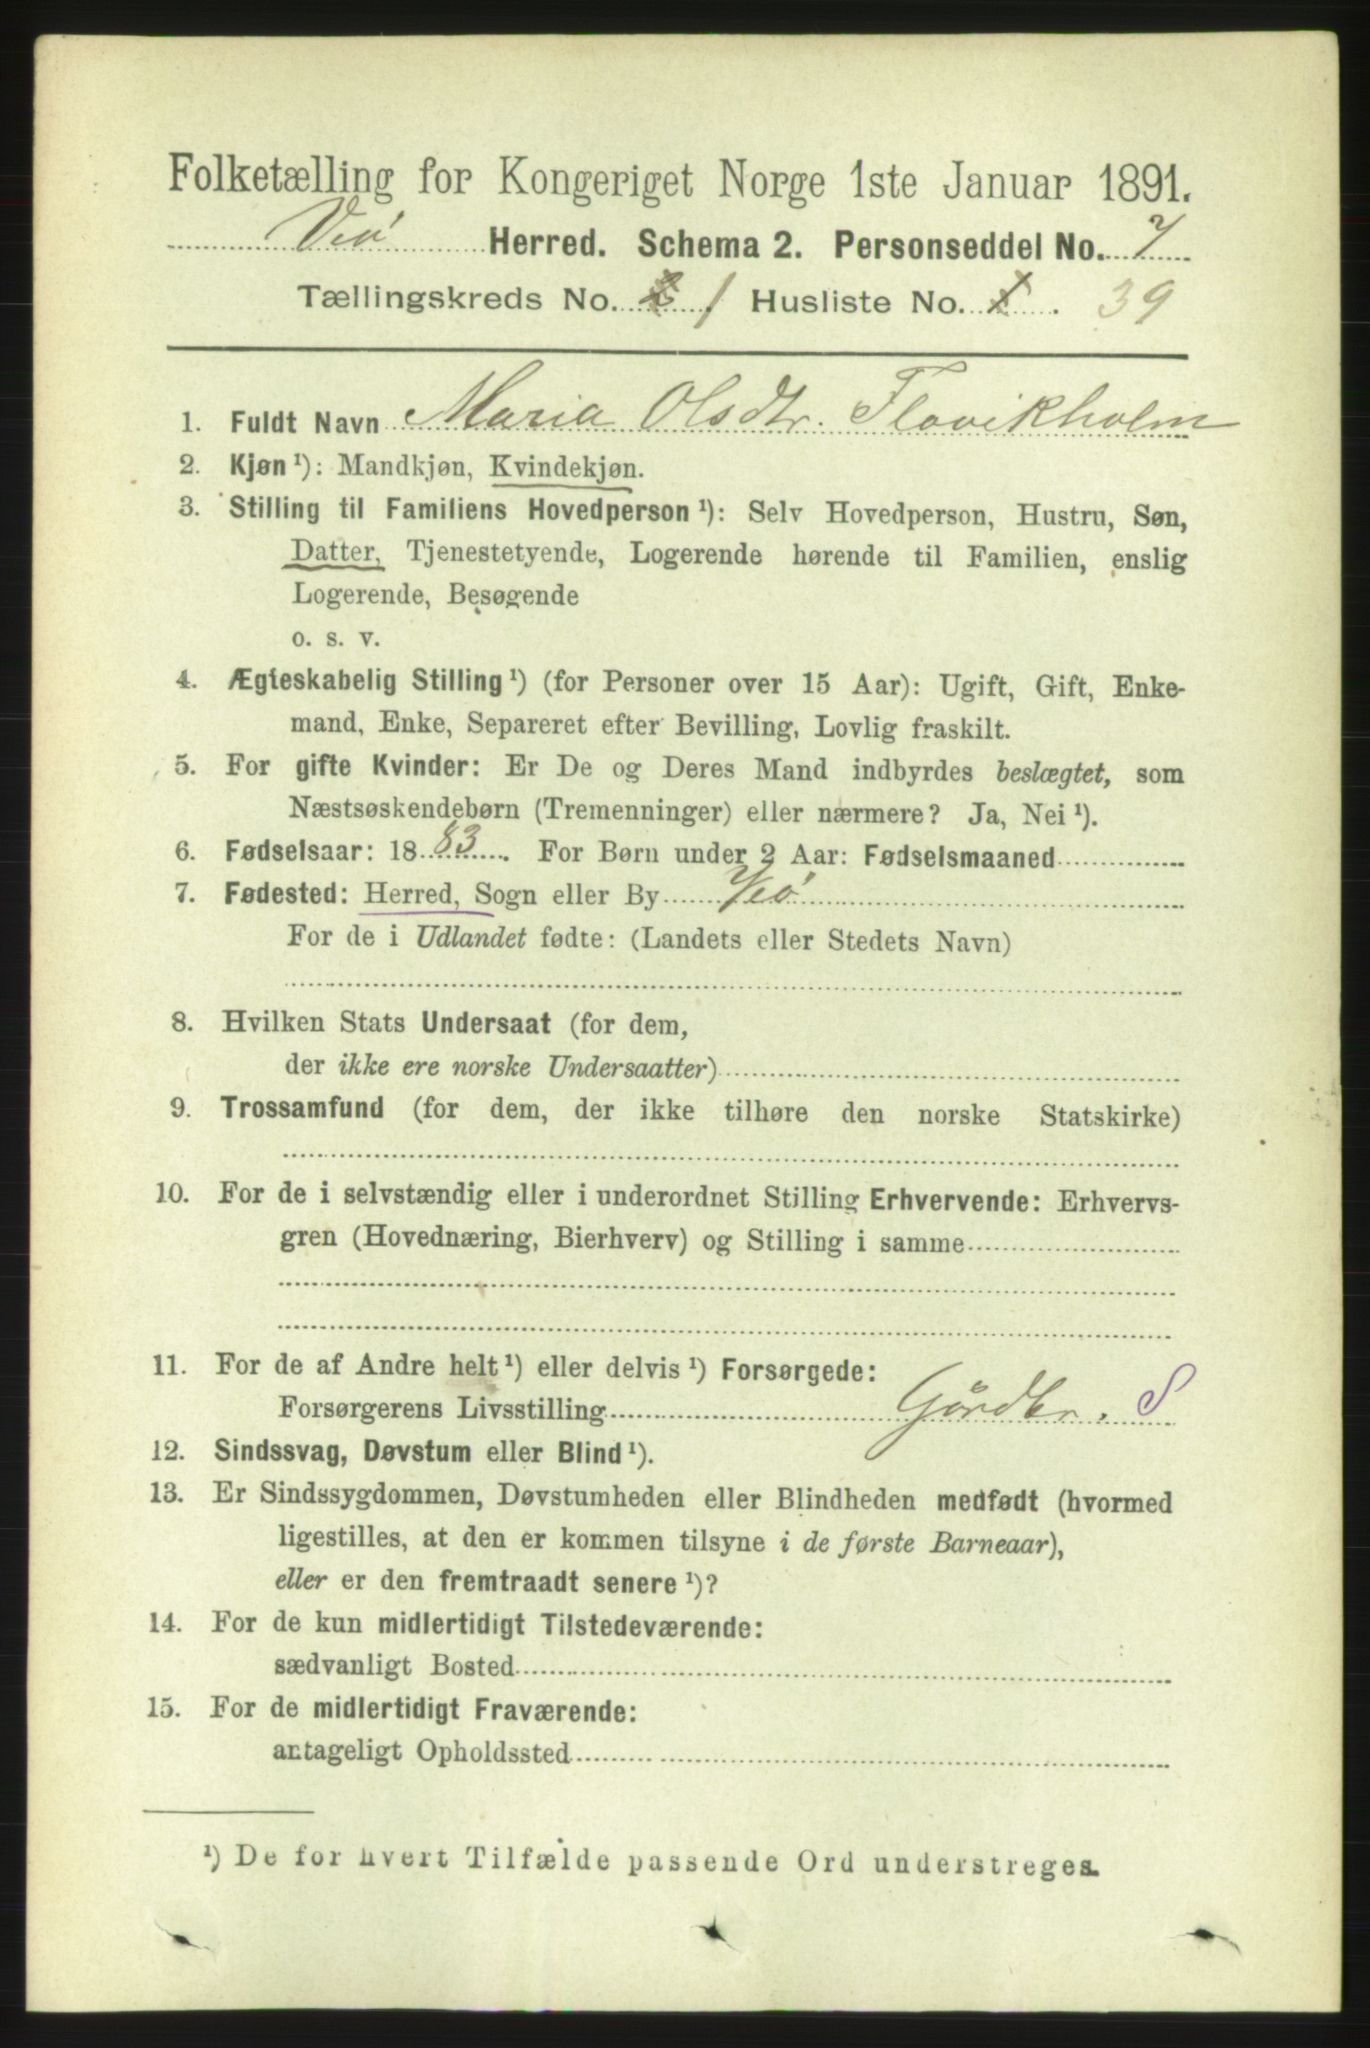 Folketælling for Kongeriget Norge 1ste Januar 1891.
Veø Herred. Schema 2. Personseddel No. 7
Tællingskreds No. 1 Husliste No. 39
1. Fuldt Navn Maria Olsdtr. Flovikholm
2. Kjøn¹): Mandkjøn, Kvindekjøn.
3. Stilling til Familiens Hovedperson¹): Selv Hovedperson, Hustru, Søn,
Datter, Tjenestetyende, Logerende hørende til Familien, enslig
Logerende, Besøgende
o. s. v.
4. Ægteskabelig Stilling¹) (for Personer over 15 Aar): Ugift, Gift, Enke-
mand, Enke, Separeret efter Bevilling, Lovlig fraskilt.
5. For gifte Kvinder: Er De og Deres Mand indbyrdes beslægtet, som
Næstsøskendebørn (Tremenninger) eller nærmere? Ja, Nei¹).
6. Fødselsaar: 1883. For Børn under 2 Aar: Fødselsmaaned
7. Fødested: Herred, Sogn eller By Veø
For de i Udlandet fødte: (Landets eller Stedets Navn)
8. Hvilken Stats Undersaat (for dem,
der ikke ere norske Undersaatter)
9. Trossamfund (for dem, der ikke tilhøre den norske Statskirke)
10. For de i selvstændig eller i underordnet Stilling Erhvervende: Erhvervs-
gren (Hovednæring, Bierhverv) og Stilling i samme
11. For de af Andre helt¹) eller delvis¹) Forsørgede:
Forsørgerens Livsstilling Gårdbr. S
12. Sindssvag, Døvstum eller Blind¹).
13. Er Sindssygdommen, Døvstumheden eller Blindheden medfødt (hvormed
ligestilles, at den er kommen tilsyne i de første Barneaar),
eller er den fremtraadt senere¹)?
14. For de kun midlertidigt Tilstedeværende:
sædvanligt Bosted
15. For de midlertidigt Fraværende:
antageligt Opholdssted
¹) De for hvert Tilfælde passende Ord understreges.